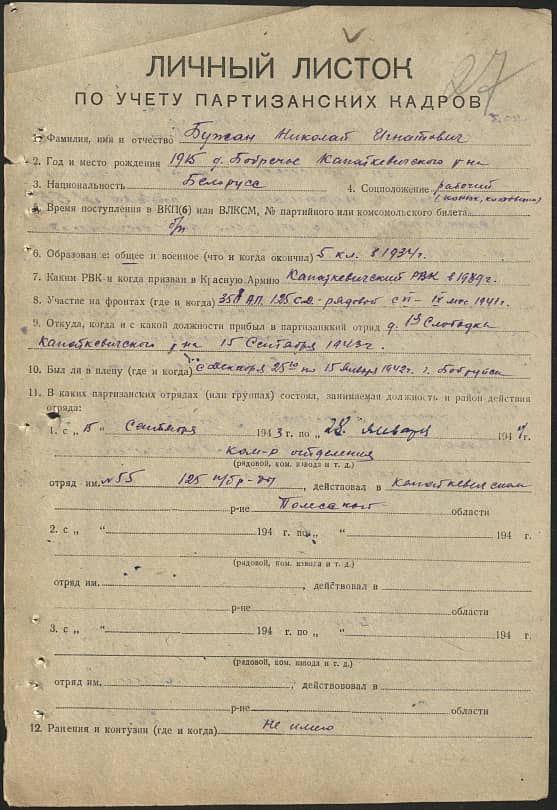 27
ЛИЧНЫЙ ЛИСТОК
ПО УЧЕТУ ПАРТИЗАНСКИХ КАДРОВ
1. Фамилия, имя и отчество Бужан Николай Игнатович
2. Год и место рождения 1915 д. Копаткевичского р-на
3. Национальность Белорусс 4. Соцположение рабочий
5. Время поступления в ВКП(б) или ВЛКСМ, № партийного или комсомольского билета
б/п
6. Образование: общее и военное (что и когда окончил) 5 кл. в 1934 г.
7. Каким РВК и когда призван в Красную Армию Капаткевичский РВК в 1939 г.
8. Участие на фронтах (где и когда) А.П. 125 с.д. рядовой с мес. 1941 г.
9. Откуда, когда и с какой должности прибыл в партизанский отряд д. Слободка
Капаткевичского р-на 15 Сентября 1943 г.
10. Был ли в плену (где и когда) по 15 января 1942 г. г. Бобруйск
11. В каких партизанских отрядах (или группах) состоял, занимаемая должность и район действия
отряда:
1. с „15 Сентября 1943 г. по „28 января 1944 г.
ком-р отделения
(рядовой, ком. взвода и т. д.)
отряд им. №55 125 п/бр-ды, действовал в Капаткевичском
р-не Полеской области
2. с „ “ 194 г. по „ “ 194 г.
(рядовой, ком. взвода и т. д.)
отряд им. , действовал в
р-не области
3. с „ “ 194 г. по „ “ 194 г.
(рядовой, ком. взвода и т. д.)
отряд им. , действововал в
р-не области
12. Ранения и контузии (где и когда) Не имею